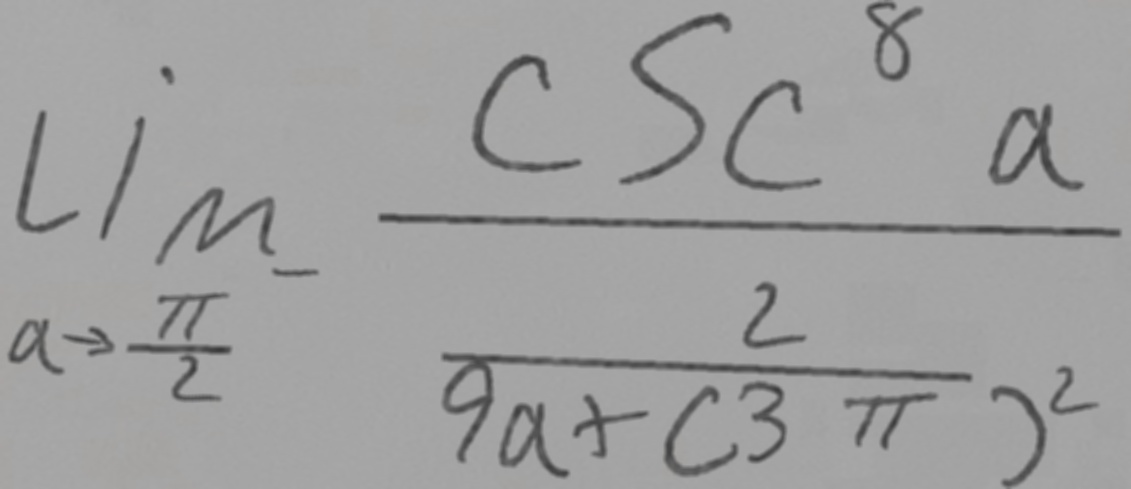 \lim_{a \to \frac{\pi}{2}^-} \frac{\csc^8 a}{\frac{2}{9a + (3\pi)^2}}